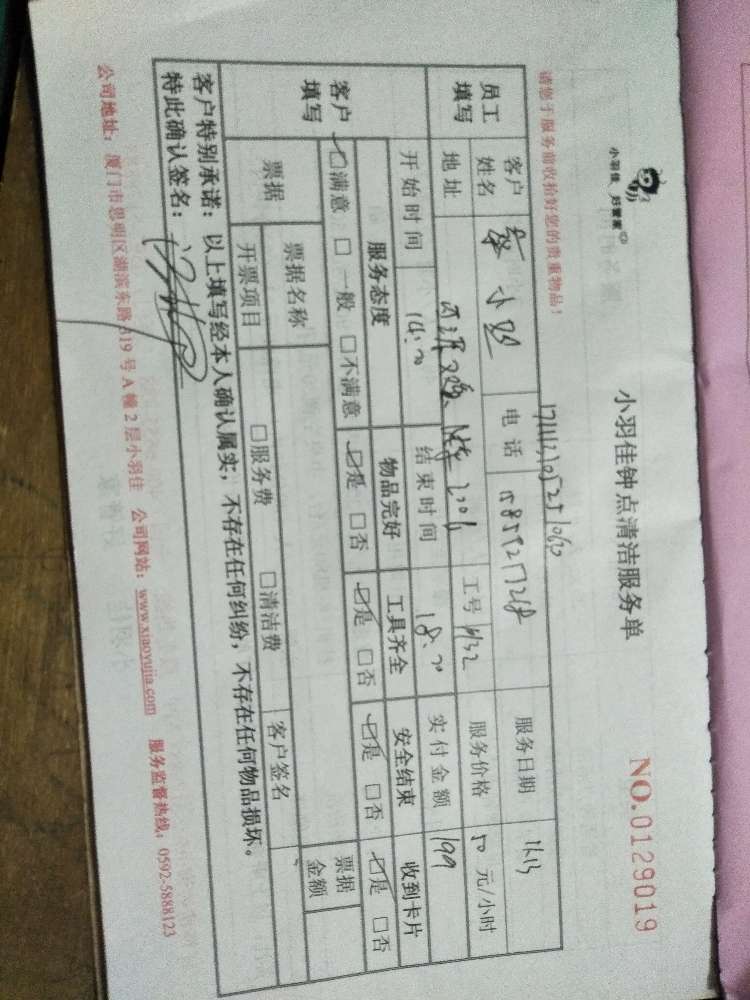 小羽佳 好管家
小羽佳钟点清洁服务单
NO.0129019
请您于服务前收捡好您的贵重物品！
员工填写 客户姓名 小 电话 服务日期
地址 工号 服务价格 50 元/小时
开始时间 结束时间 实付金额 199
客户填写 服务态度 物品完好 工具齐全 安全结束 收到卡片
☑满意 □一般 □不满意 ☑是 □否 ☑是 □否 ☑是 □否 ☑是 □否
票据 票据名称 票据金额
开票项目 □服务费 □清洁费 客户签名
客户特别承诺：以上填写经本人确认属实，不存在任何纠纷，不存在任何物品损坏。
特此确认签名：
公司地址：厦门市思明区湖滨东路319号A幢2层小羽佳 公司网站：www.xiaoyujia.com 服务监督热线：0592-5888123